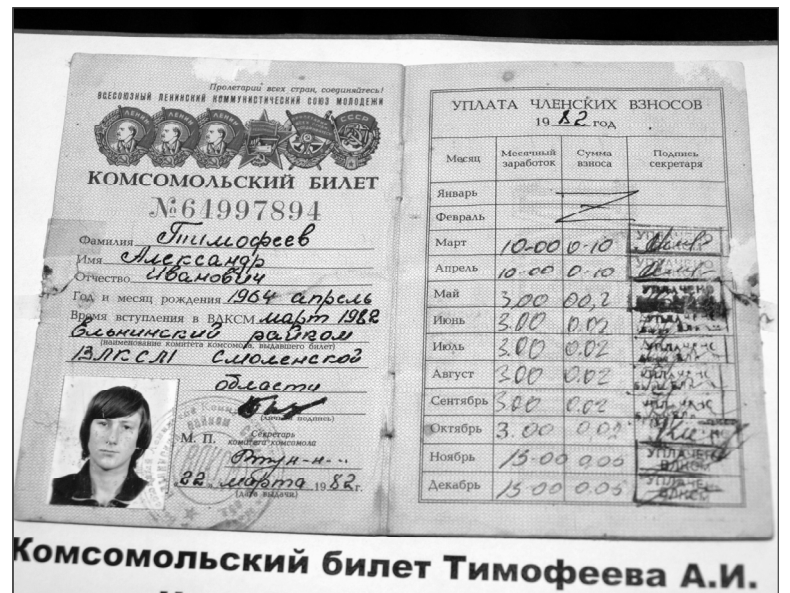 Пролетарии всех стран, соединяйтесь!
ВСЕСОЮЗНЫЙ ЛЕНИНСКИЙ КОММУНИСТИЧЕСКИЙ СОЮЗ МОЛОДЕЖИ
ЛЕНИН ЛЕНИН ЛЕНИН СССР
КОМСОМОЛЬСКИЙ БИЛЕТ
№61997894
Фамилия Тимофеев
Имя Александр
Отчество Иванович
Год и месяц рождения 1964 апрель
Время вступления в ВЛКСМ март 1982
Ельнинский райком
(наименование комитета комсомола, выдавшего билет)
ВЛКСМ Смоленской
области
(личная подпись)
М. П.
Секретарь
комитета комсомола
22 марта 1982 г.
(дата выдачи)
УПЛАТА ЧЛЕНСКИХ ВЗНОСОВ
1982 год
Месяц Месячный заработок Сумма взноса Подпись секретаря
Январь
Февраль
Март 10-00 0-10 УПЛАЧЕНО
Апрель 10-00 0-10 УПЛАЧЕНО
Май 3,00 УПЛАЧЕНО
Июнь 3.00 0.02 УПЛАЧЕНО
Июль 3.00 0.02 УПЛАЧЕНО
Август 3.00 0.02
Сентябрь 3.00 0.02
Октябрь 3.00 0.02
Ноябрь 15-00 0,05 УПЛАЧЕНО ВЛКСМ
Декабрь 15-00 0.05 УПЛАЧЕНО ВЛКСМ
Комсомольский билет Тимофеева А.И.